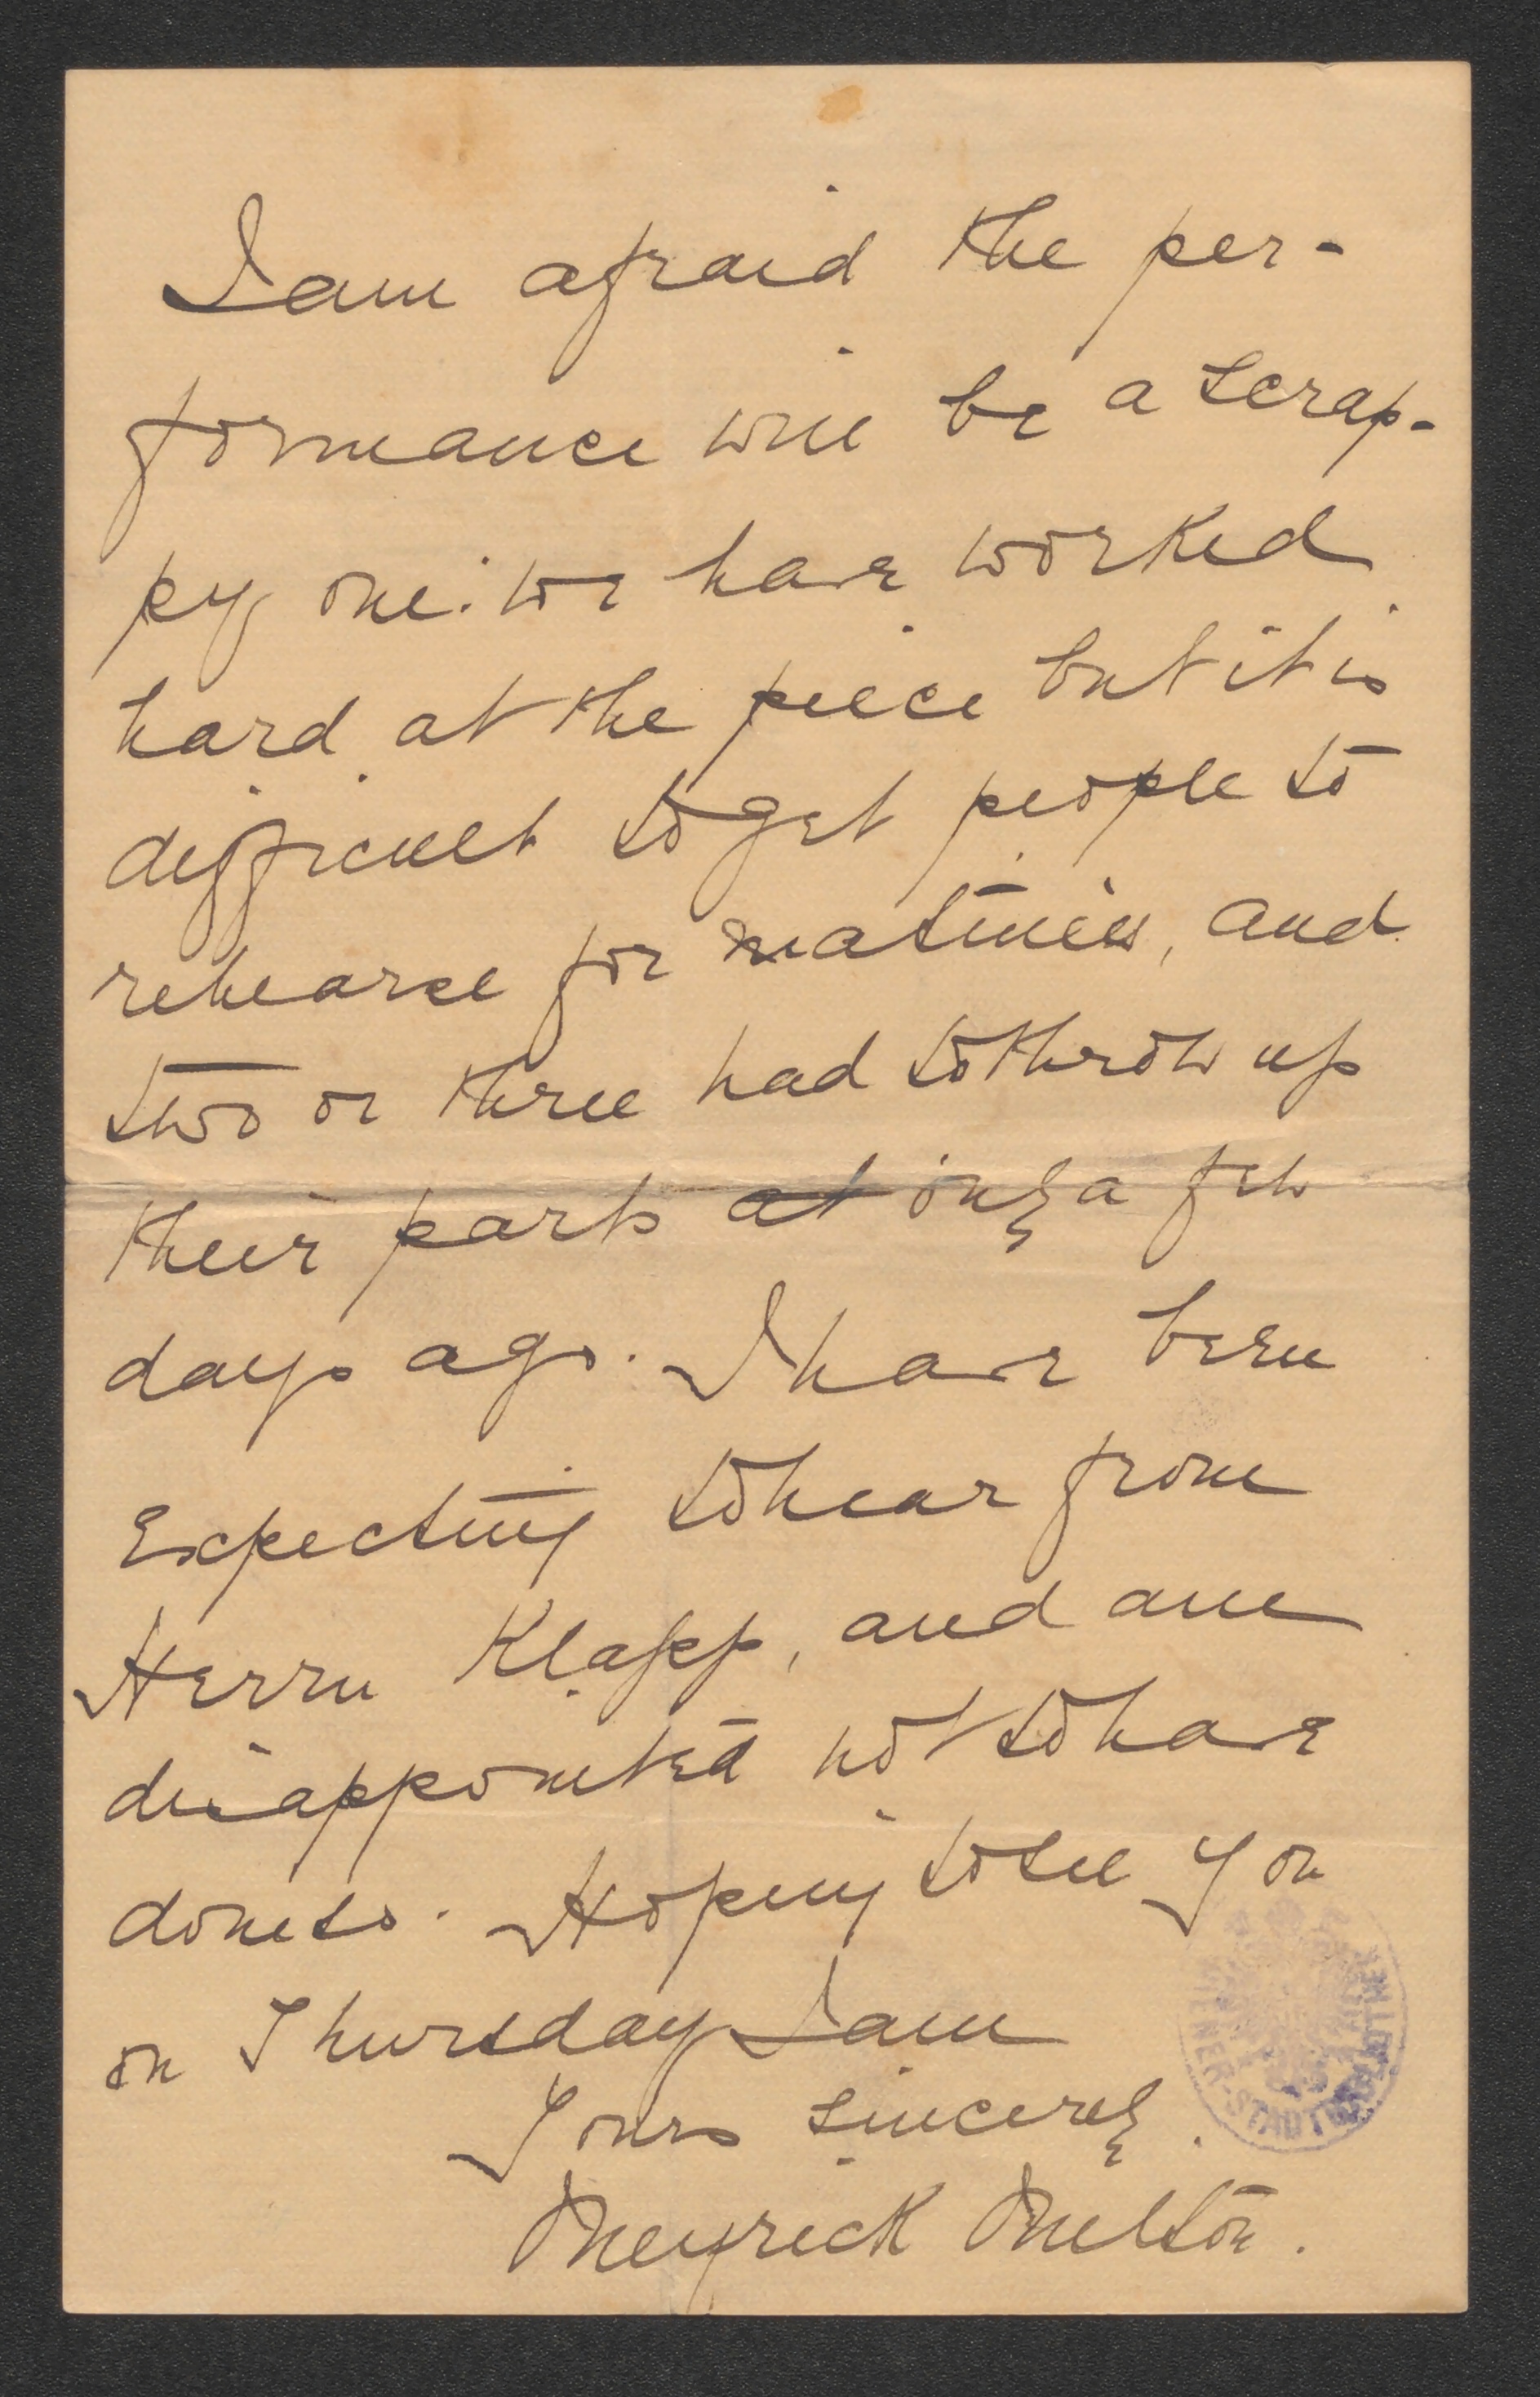 I am afraid the per-
formance will be a scrap-
py one: we have worked
hard at the piece but it is
difficult to get people to
rehearse for matinées, and
two or three had to throw up
their parts at only a few
days ago. I have been
expecting to hear from
Herrn Klapp, and am
disappointed not to have
done so. Hoping to see you
on Thursday I am
Yours sincerely
Meyrick Milton.
WIENER STADTBIBLIOTHEK